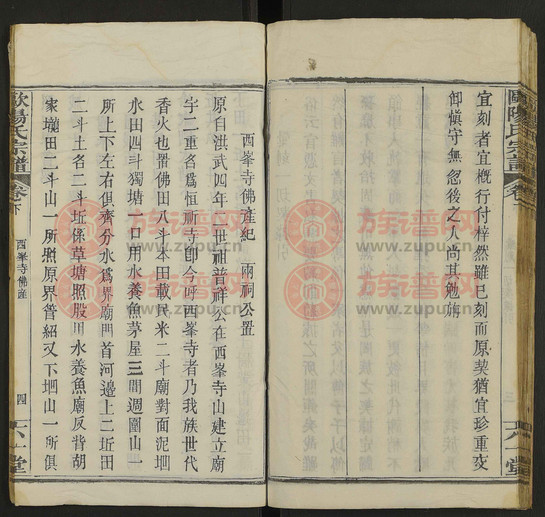 歐陽氏宗譜
卷
六一堂
宜刻者宜概行付梓然雖已刻而原契猶宜珍重交
卸慎守無忽後之人尚其勉旃
西峯寺佛產紀
兩祠公置
原自洪武四年二世祖普祥公在西峯寺山建立廟
宇二重名爲恒祈寺卽今呼西峯寺者乃我族世代
香火也置佛田八斗本田載民米二斗廟對面泥垇
水田四斗獨塘一口用水養魚茅屋三間週圍山一
所上下左右俱齊分水爲界廟門首河邊上二坵田
二斗土名二斗坵係草塘照股用水養魚廟反背胡
家壠田二斗山一所照原界管紹又下垇山一所俱
歐陽氏宗譜
卷下
西峯寺佛產
四
六一堂
万族普网
www.zupu.cn